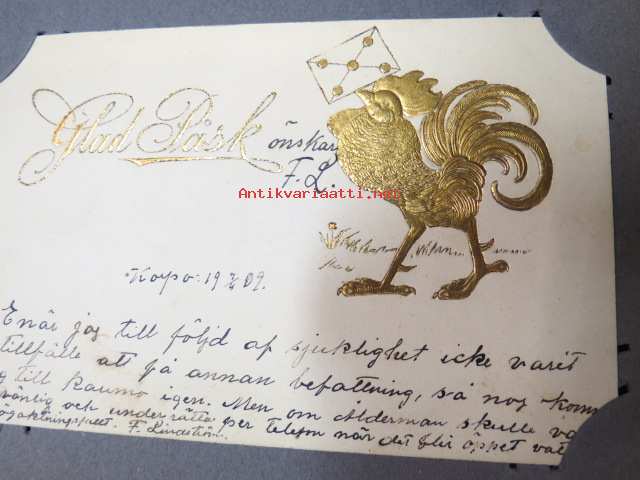 Glad Påsk önskar
F. L.
Antikvariaatti.net
Korpo 19 09.
Enär jag till följd af sjuklighet icke varit
tillfälle att få annan befattning, så nog
till Raumo igen. Men om Ålderman skulle
vänlig och underrätta per telefon när det blir öppet
F. Lindström.